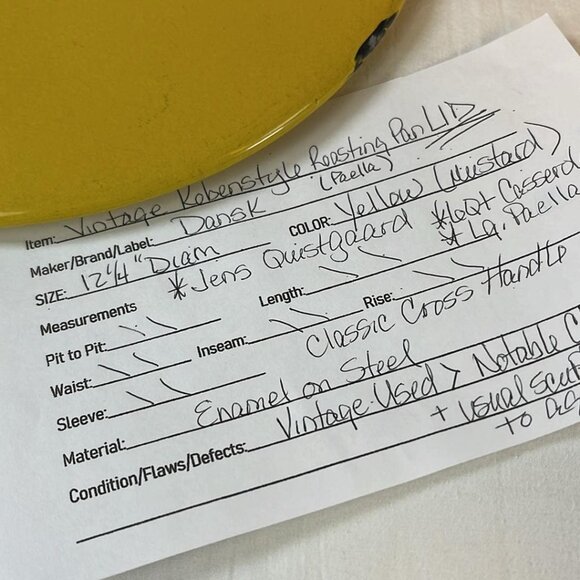 Item: Vintage Kobenstyle Roasting Pan LID
(Paella)
Maker/Brand/Label: Dansk COLOR: Yellow (Mustard)
SIZE: 12 1/4" Diam *Jens Quistgaard *6Qt Casserol
* Lg. Paella
Measurements Length: \ \ Rise: \ \
Pit to Pit: \ \ Inseam: \ \ Classic Cross Handle
Waist: \ \
Sleeve: \ \
Material: Enamel on Steel
Condition/Flaws/Defects: Vintage-Used > Notable C
+ usual scuf
to